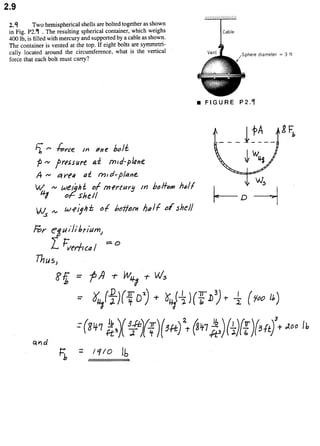 2.9
2.9 Two hemispherical shells are bolted together as shown
in Fig. P2.9 . The resulting spherical container, which weighs
400 lb, is filled with mercury and supported by a cable as shown.
The container is vented at the top. If eight bolts are symmetri-
cally located around the circumference, what is the vertical
force that each bolt must carry?
Cable
Vent
Sphere diameter = 3 ft
■ FIGURE P2.9
F_b ~ force in one bolt
p ~ pressure at mid-plane
A ~ area at mid-plane
W_Hg ~ weight of mercury in bottom half
of shell
W_s ~ weight of bottom half of shell
pA
8 F_b
W_Hg
W_s
D
For equilibrium,
Σ F_vertical = 0
Thus,
8 F_b = pA + W_Hg + W_s
= γ_Hg (D/2)(π/4 D²) + γ_Hg (1/2)(π/6 D³) + 1/2 (400 lb)
= (847 lb/ft³)(3 ft/2)(π/4)(3 ft)² + (847 lb/ft³)(1/2)(π/6)(3 ft)³ + 200 lb
and
F_b = 1910 lb